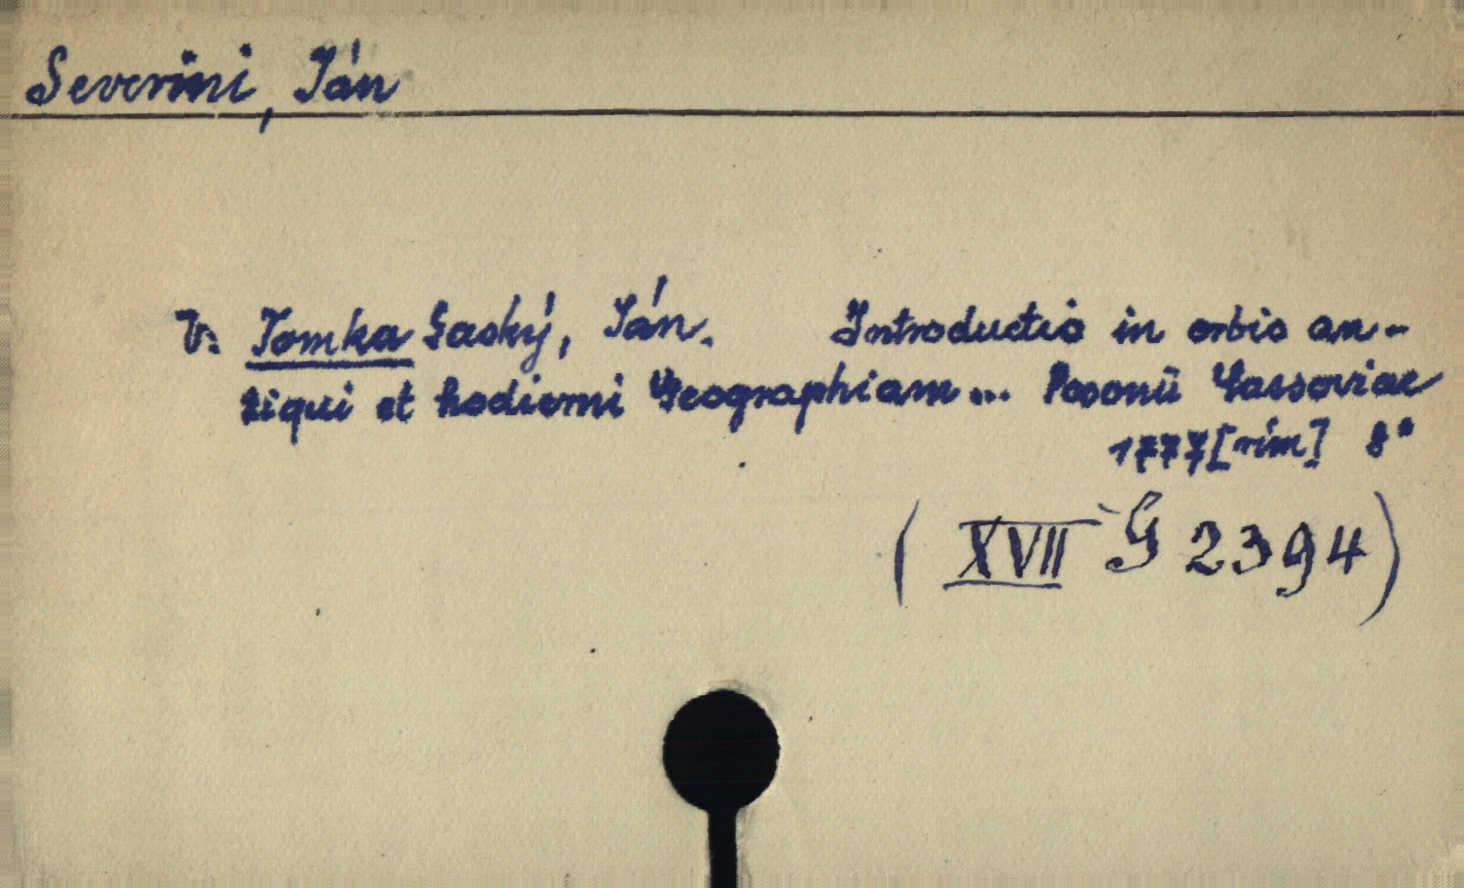 Severini, Ján
V: Tomka Saský, Ján. Introductio in orbis an-
tiqui et hodierni Geographiam... Posonii Cassoviae
1777 [rím] 8°
( XVII G 2394)